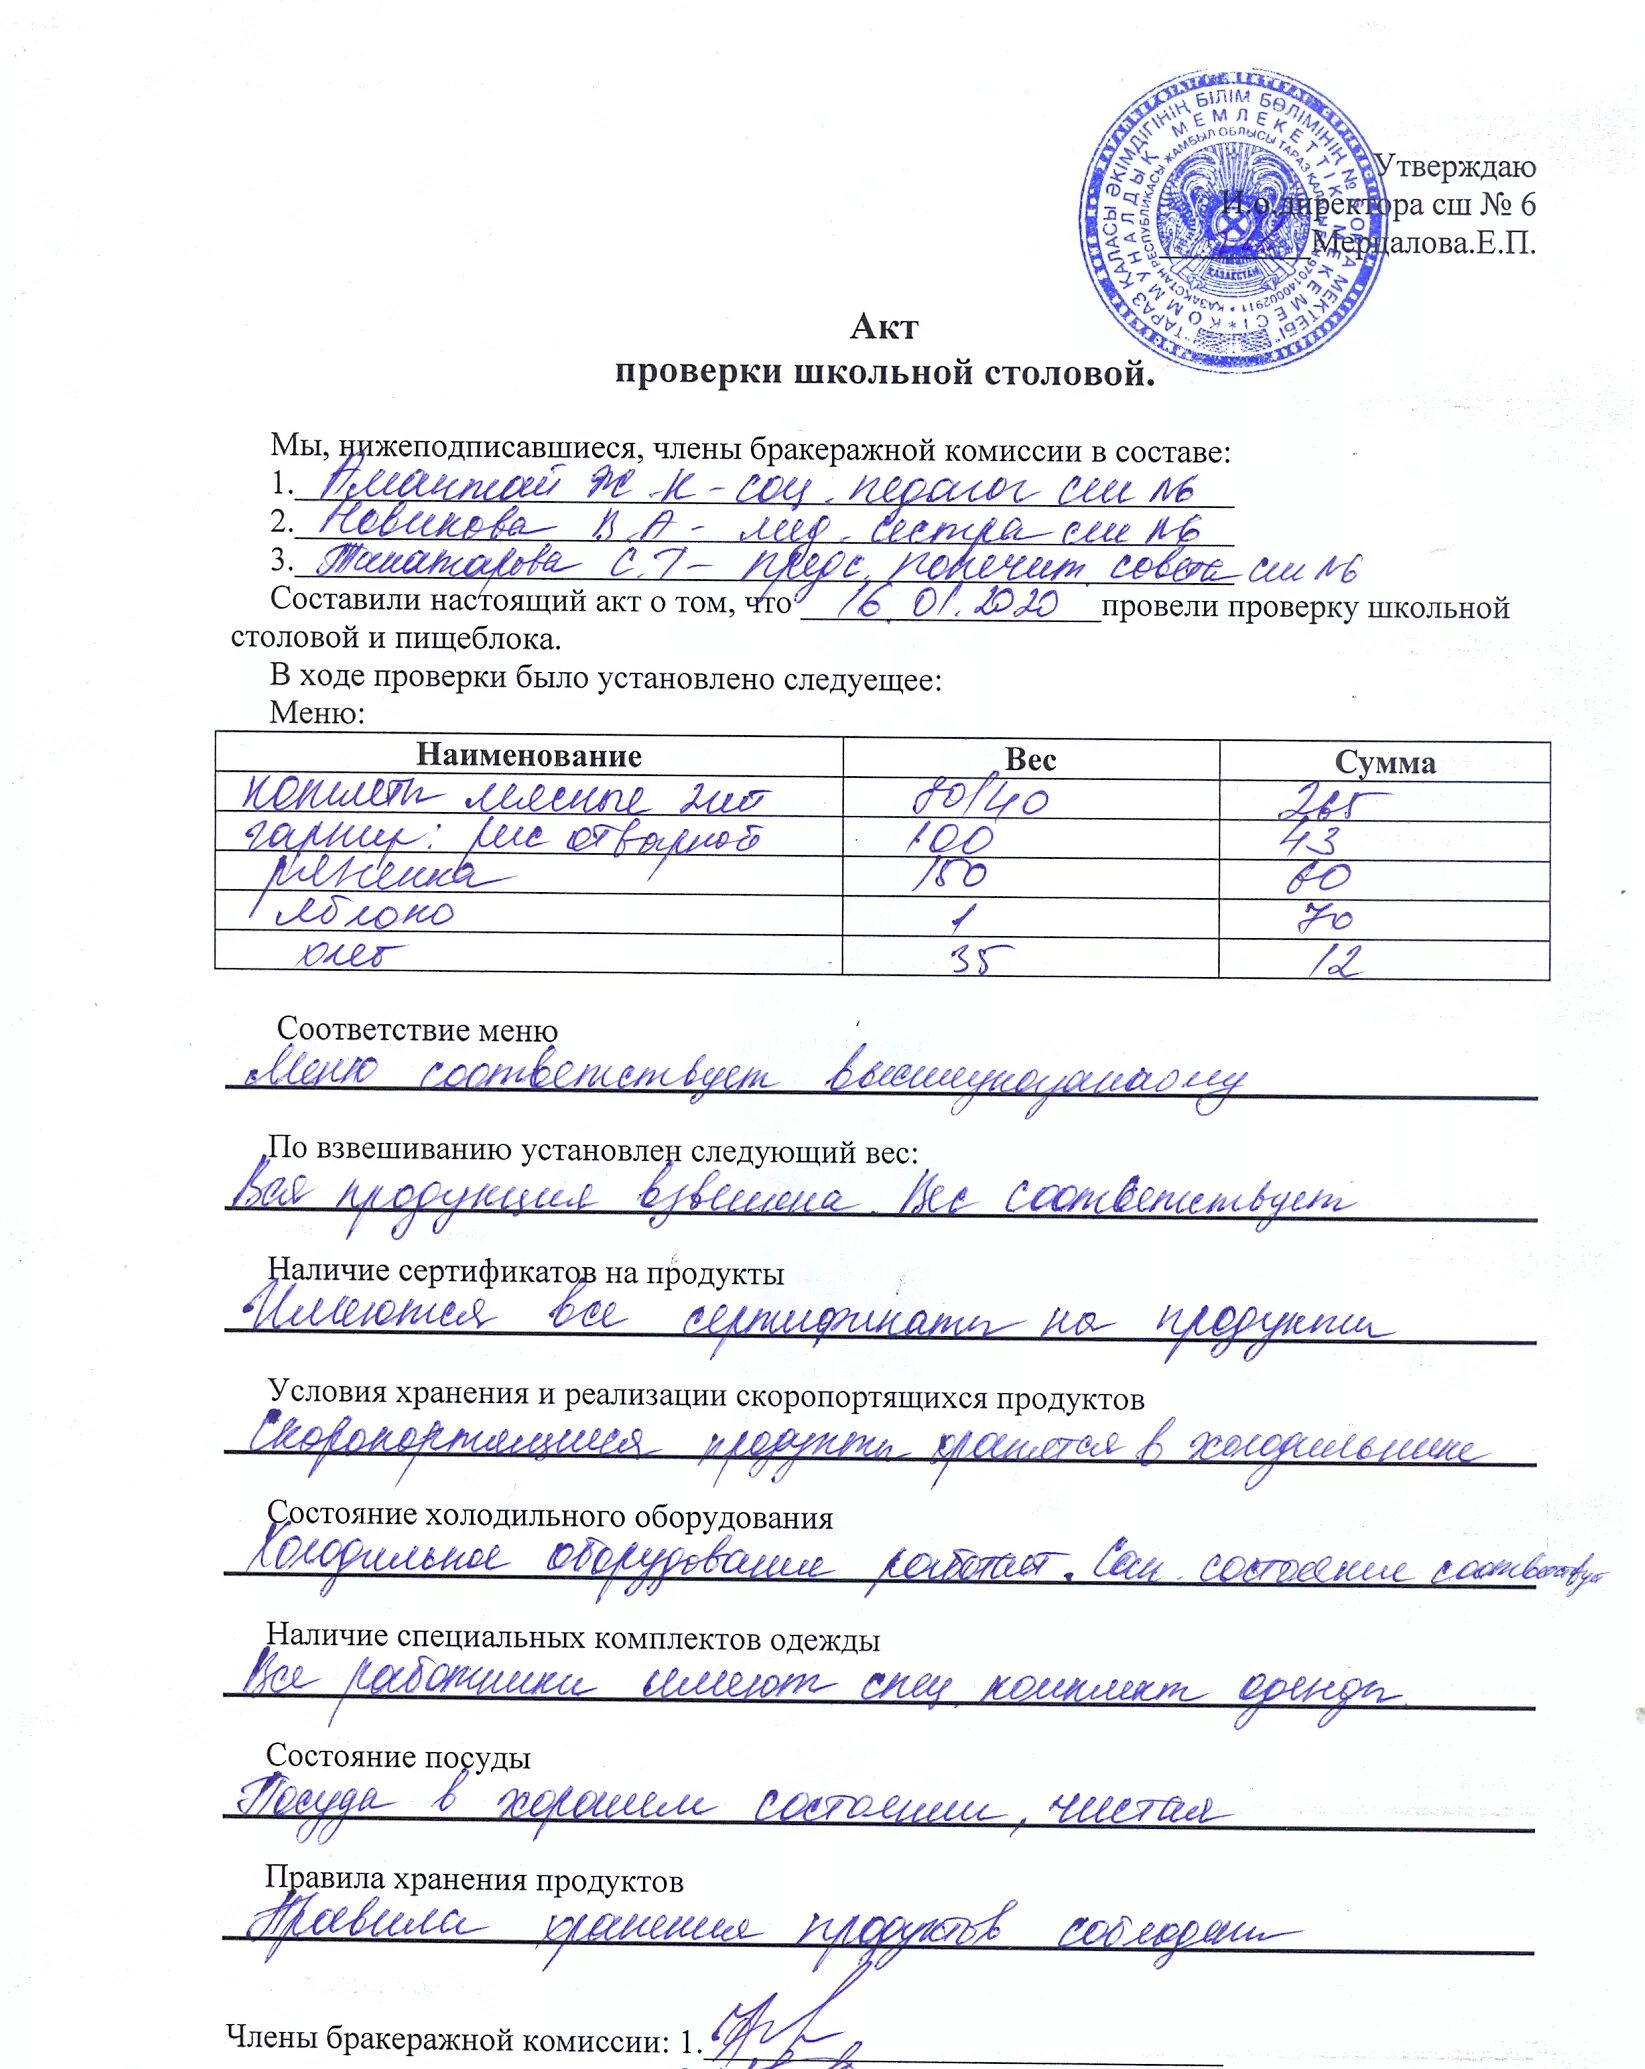 Утверждаю
И.о.директора сш № 6
Мерцалова.Е.П.
ТАРАЗ ҚАЛАСЫ ӘКІМДІГІНІҢ БІЛІМ БӨЛІМІНІҢ № 6 ОРТА МЕКТЕБІ
КОММУНАЛДЫҚ МЕМЛЕКЕТТІК МЕКЕМЕСІ
ҚАЗАҚСТАН РЕСПУБЛИКАСЫ ЖАМБЫЛ ОБЛЫСЫ ТАРАЗ ҚАЛАСЫ
ҚАЗАҚСТАН
Акт
проверки школьной столовой.
Мы, нижеподписавшиеся, члены бракеражной комиссии в составе:
1. Амантай Ж.К - соц. педагог сш №6
2. Новикова В.А - мед. сестра сш №6
3. С.Т - предс. попечит совета сш №6
Составили настоящий акт о том, что 16.01.2020 провели проверку школьной
столовой и пищеблока.
В ходе проверки было установлено следуещее:
Меню:
Наименование Вес Сумма
котлеты мясные 2шт /40 265
гарнир: рис отварной 100 43
ряженка 150 60
яблоко 1 70
хлеб 35 12
Соответствие меню
Меню соответствует вышеуказанному
По взвешиванию установлен следующий вес:
Вся продукция взвешена. Вес соответствует
Наличие сертификатов на продукты
Имеются все сертификаты на продукты
Условия хранения и реализации скоропортящихся продуктов
Скоропортящиеся продукты хранятся в холодильнике
Состояние холодильного оборудования
Холодильное оборудование работает. Сан. состояние соответствует
Наличие специальных комплектов одежды
Все работники имеют спец. комплект одежды.
Состояние посуды
Посуда в хорошем состоянии, чистая
Правила хранения продуктов
Правила хранения продуктов
Члены бракеражной комиссии: 1.